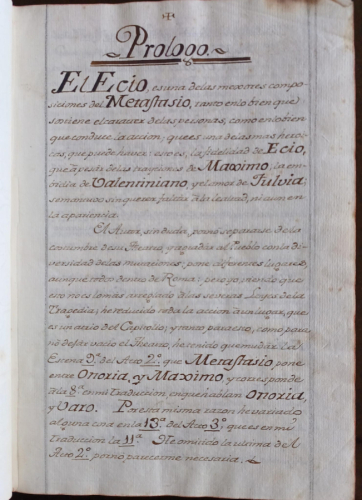 Prologo.
El Ecio, es una de las mexores compo-
siciones del Metastasio, tanto en lo bien que
sostiene el caracter de las personas, como en lo bien
que conduce la accion; que es una de las mas heroi-
cas, que puede haver: esto es, la fidelidad de Ecio,
que à pesar de las trayciones de Maximo, la em-
bidia de Valentiniano, y el amor de Fulvia,
se mantuvo sin querer faltar à la lealtad, ni aun en
la apariencia.
El Autor, sin duda, por no separarse de la
costumbre de su Theatro, y agradar al Pueblo con la di-
versidad de las mutaciones, pone diferentes lugares,
aunque todos dentro de Roma: pero yo, viendo que
esto no es lo mas arreglado à las severas Leyes de la
Tragedia; he reducido toda la accion à un lugar, que
es un atrio del Capitolio; y tanto por esto, como por no
dexar vacio el Theatro, he tenido que mudar la
Escena 9.ª del Acto 2.º que Metastasio pone
entre Onoria, y Maximo, y corresponde
à la 8.ª en mi traduccion en que hablan Onoria,
y Varo. Por esta misma razon he variado
alguna cosa en la 13.ª del Acto 3.º que es en mi
traduccion la 11.ª He omitido la ultima del
Acto 2.º por no parecerme necesaria.